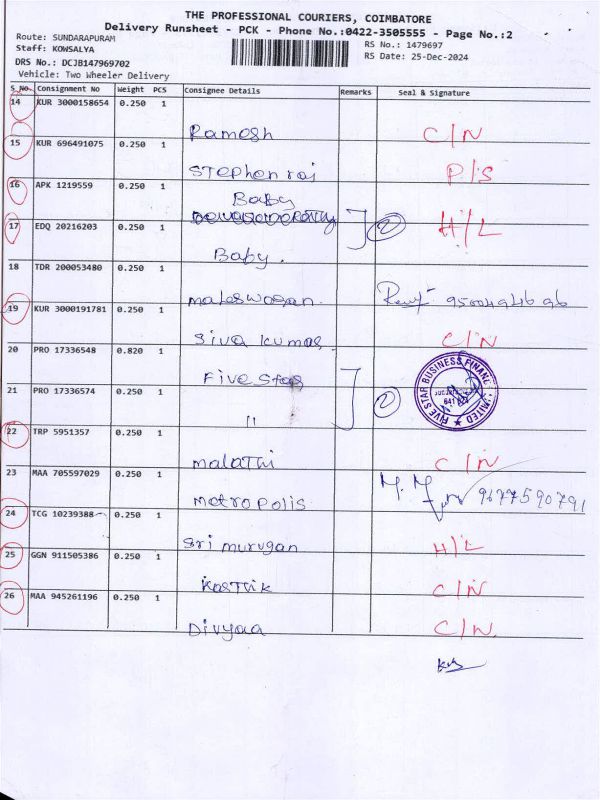 THE PROFESSIONAL COURIERS, COIMBATORE
Delivery Runsheet - PCK - Phone No.:0422-3505555 - Page No.:2
Route: SUNDARAPURAM
RS No.: 1479697
Staff: KOWSALYA
RS Date: 25-Dec-2024
DRS No.: DCJB147969702
Vehicle: Two Wheeler Delivery
S No. Consignment No Weight PCS Consignee Details Remarks Seal & Signature
14 KUR 3000158654 0.250 1
Ramesh C/N
15 KUR 696491075 0.250 1
Stephen raj P/S
16 APK 1219559 0.250 1
Baby
2 H/L
17 EDQ 20216203 0.250 1
Baby.
18 TDR 200053480 0.250 1
maleswasan.
19 KUR 3000191781 0.250 1
Siva Kumas C/N
20 PRO 17336548 0.820 1
Five Stas
FIVE STAR BUSINESS FINANCE LIMITED
21 PRO 17336574 0.250 1
2
"
22 TRP 5951357 0.250 1
malathi C/N
23 MAA 705597029 0.250 1
metropolis 9677590791
24 TCG 10239388 0.250 1
Sri murugan H/L
25 GGN 911505386 0.250 1
Kasthik C/N
26 MAA 945261196 0.250 1
Divyaa C/N.